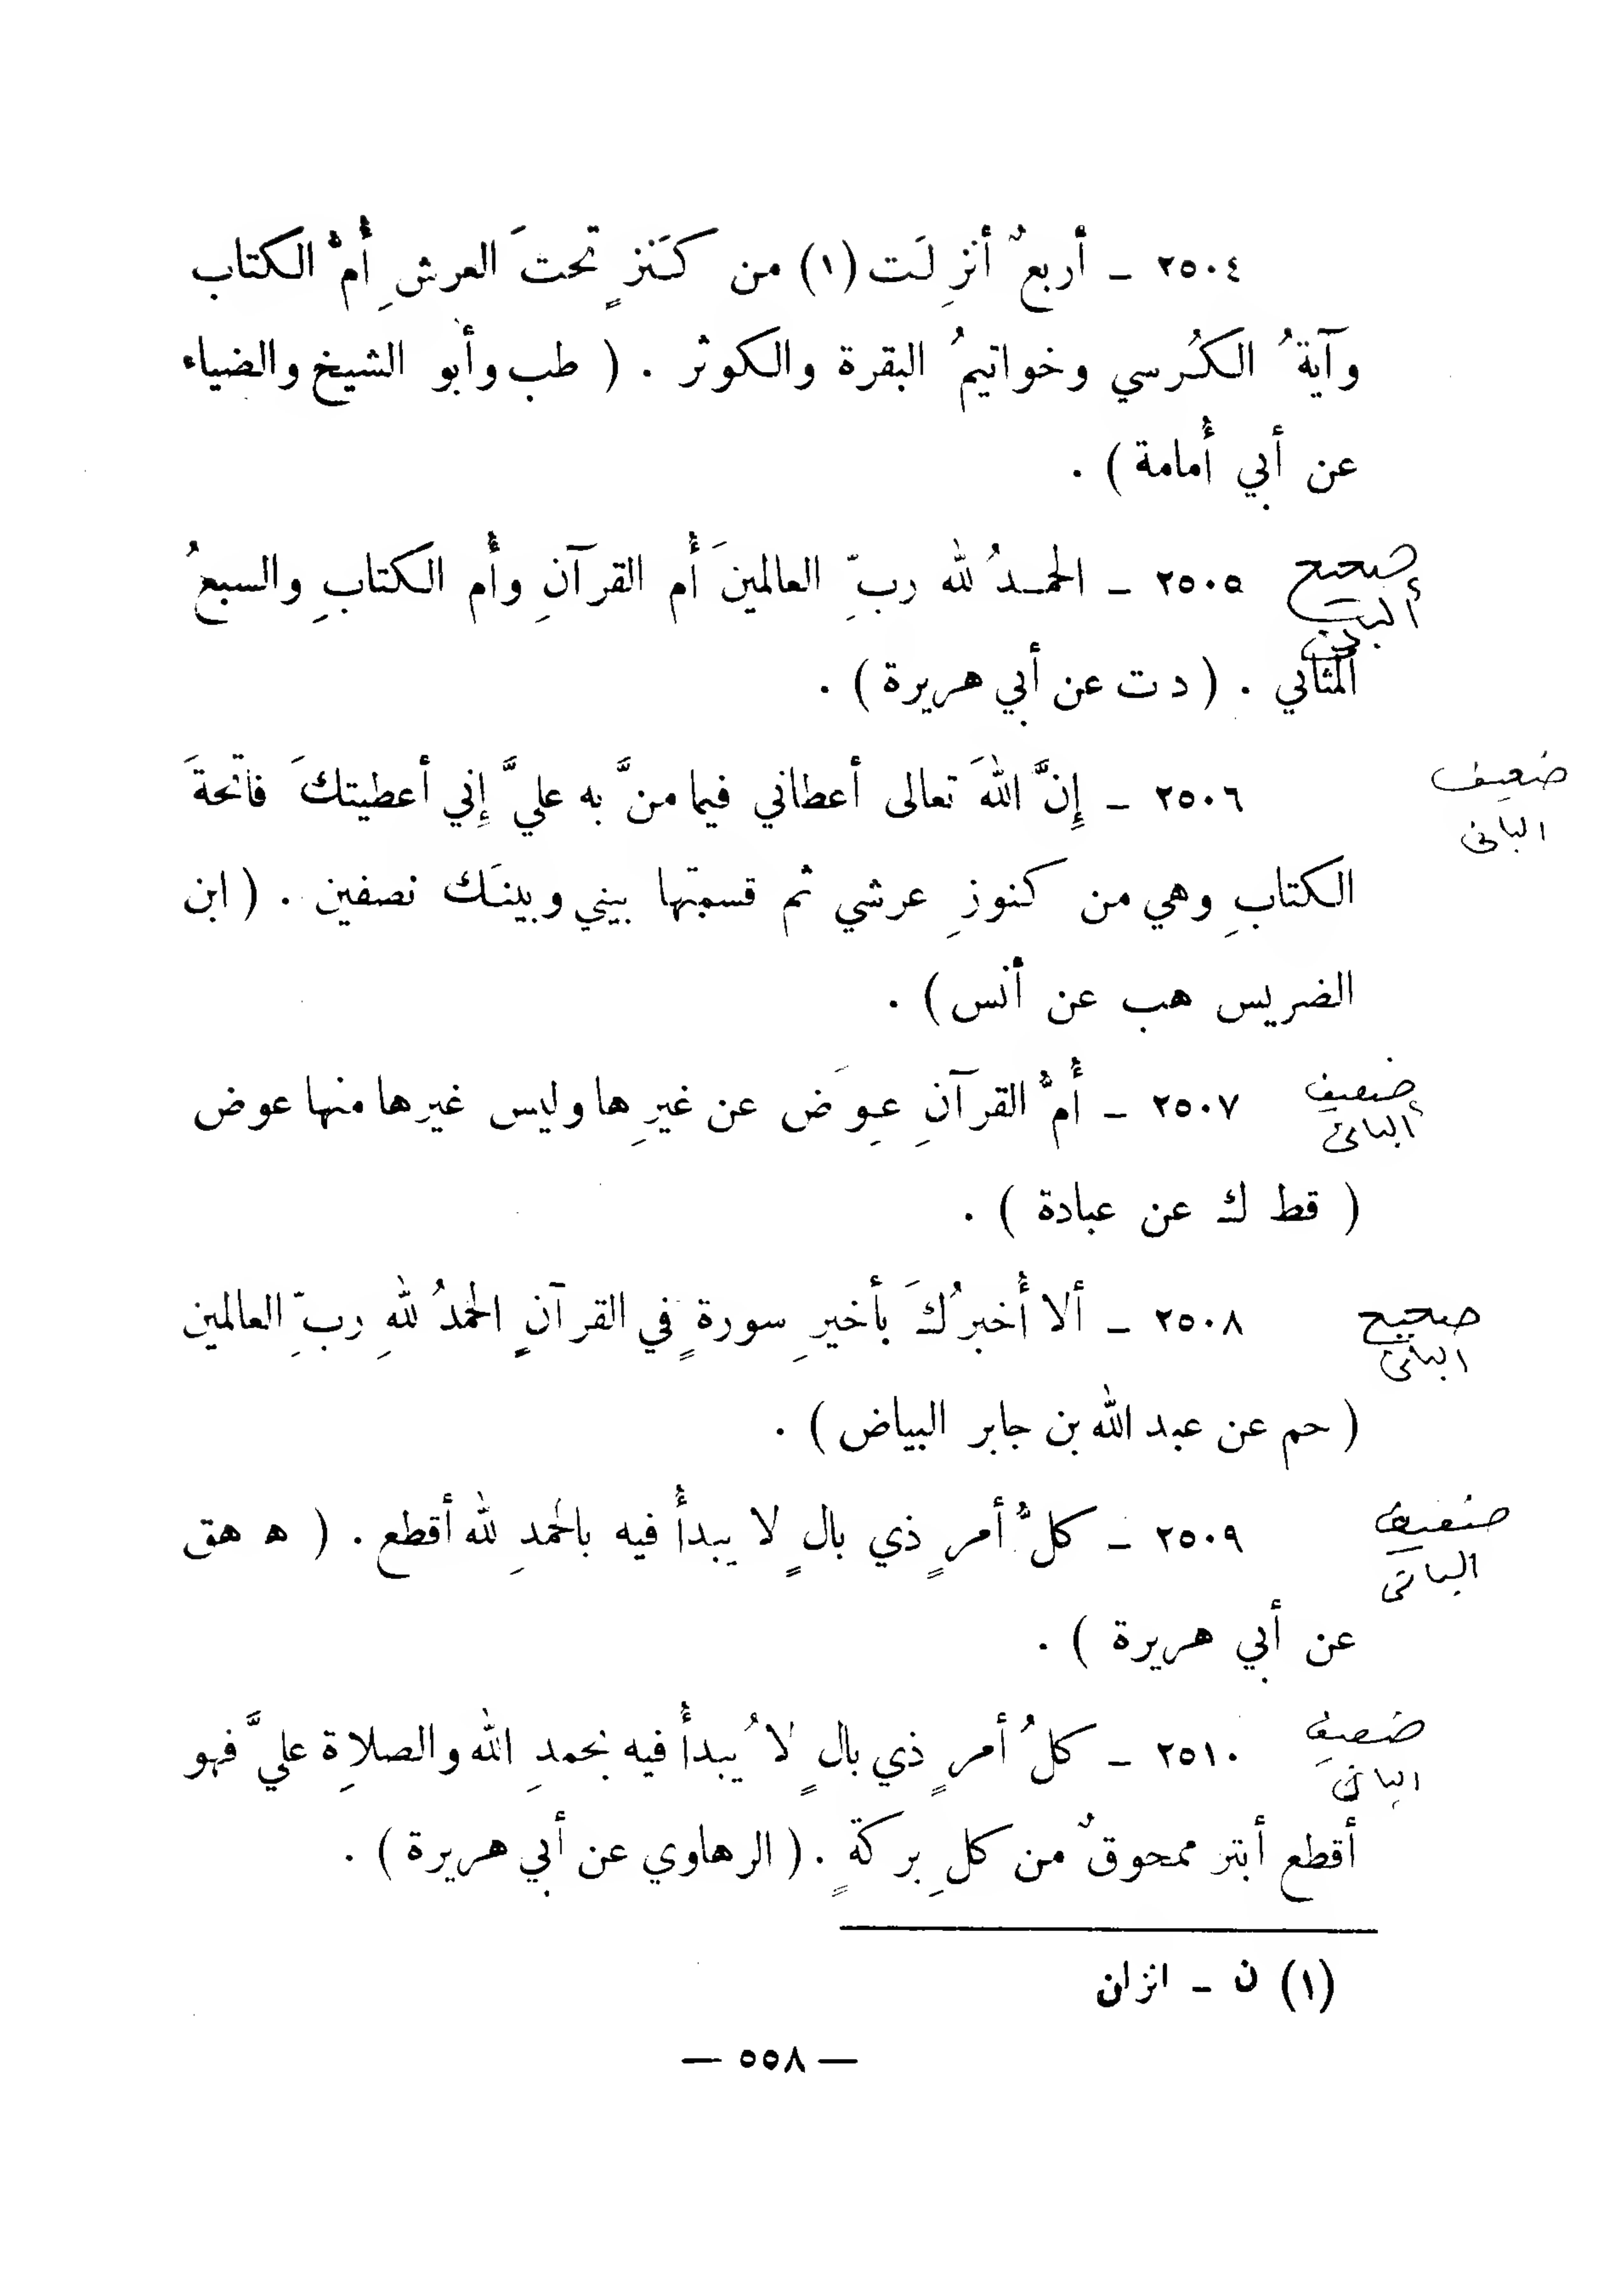 ٢٥٠٤ ــ أربعٌ أنزِلَت (١) من كَنزٍ تحتَ العرشِ أمُّ الكتاب
وآيةُ الكُرسي وخواتيمُ البقرة والكوثر . ( طب وأبو الشيخ والضياء
عن أبي أُمامة ) .
صحيح
ألباني
٢٥٠٥ ــ الحمـدُ لله ربِّ العالمينَ أُم القرآنِ وأُم الكتابِ والسبعُ
المثاني . ( د ت عن أبي هريرة ) .
ضعيف
الباني
٢٥٠٦ ــ إِنَّ اللهَ تعالى أعطاني فيما منَّ به عليَّ إِني أعطيتكَ فاتحةَ
الكتابِ وهي من كنوزِ عرشي ثم قسمتها بيني وبينَك نصفين . ( ابن
الضريس هب عن أنس ) .
ضعيف
ألباني
٢٥٠٧ ــ أُمُّ القرآنِ عِوَض عن غيرِها وليس غيرها منها عوض
( قط ك عن عبادة ) .
صحيح
الباني
٢٥٠٨ ــ ألا أُخبرُكَ بأخيرِ سورةٍ في القرآنِ الحمدُ للهِ ربِّ العالمين
( حم عن عبد الله بن جابر البياض ) .
ضعيف
الباني
٢٥٠٩ ــ كلُّ أمرٍ ذي بالٍ لا يبدأُ فيه بالحمدِ لله أقطع . ( ه هق
عن أبي هريرة ) .
ضعيف
الباني
٢٥١٠ ــ كلُ أمرٍ ذي بالٍ لا يُبدأُ فيه بحمدِ الله والصلاةِ عليَّ فهو
أقطع أبتر ممحوقٌ من كلِ بركةٍ . ( الرهاوي عن أبي هريرة ) .
(١) ن ــ انزلن
— ٥٥٨ —